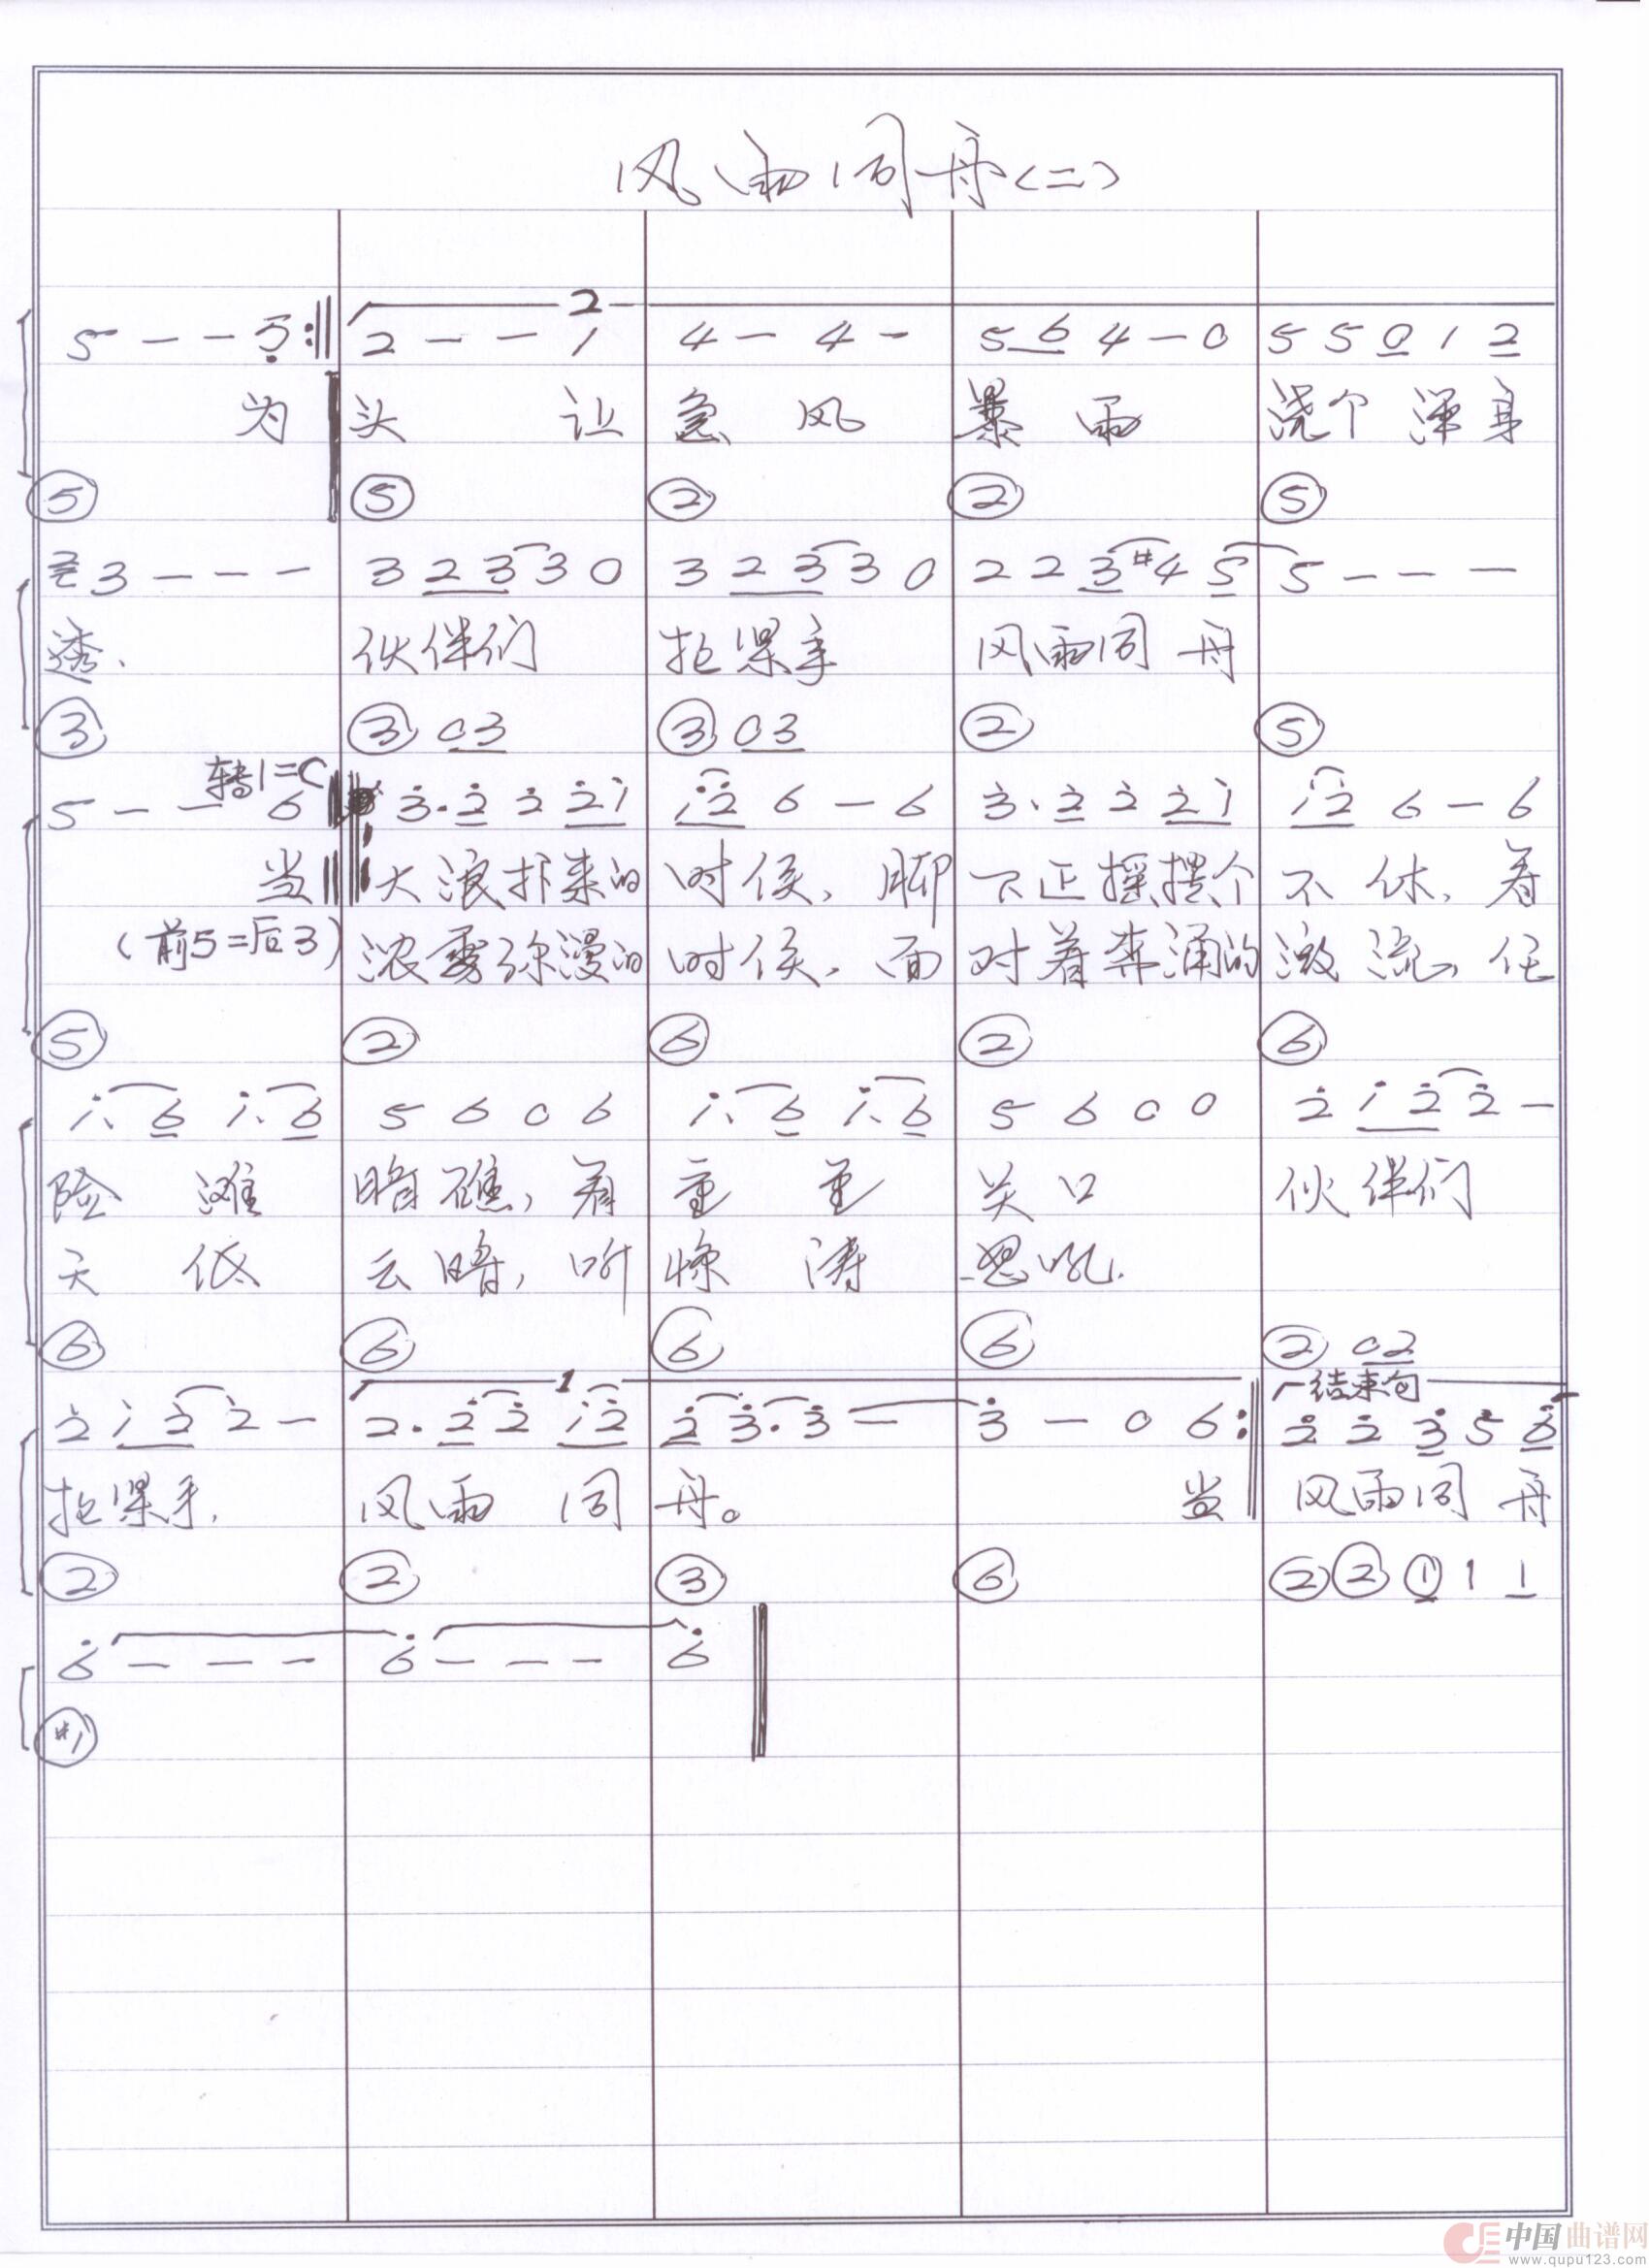 风雨同舟（二）
2
5 - - 5 :‖ 2 - - 1 4 - 4 - 5 6 4 - 0 5 5 0 1 2
为 头 让 急 风 暴 雨 浇个 浑身
⑤ ⑤ ② ② ⑤
3 - - - 3 2 3 3 0 3 2 3 3 0 2 2 3 #4 5 5 - - -
透. 伙伴们 抱紧手 风雨同舟
③ ③ 0 3 ③ 0 3 ② ⑤
转1=C
5 - - 6 3. 2 2 2 1 1 2 6 - 6 3. 2 2 2 1 1 2 6 - 6
当 大浪扑来的 时侯, 脚 下正摇摆个 不休, 着
(前5=后3) 浓雾弥漫的 时侯, 面 对着奔涌的 激流, 任
⑤ ② ⑥ ② ⑥
1. 6 1. 6 5 6 0 6 1. 6 1. 6 5 6 0 0 2 1 2 2 -
险 滩 暗礁, 着 重 重 关口 伙伴们
天 低 云暗, 听 惊 涛 怒吼.
⑥ ⑥ ⑥ ⑥ ② 0 2
1 结束句
2 1 2 2 - 2. 2 2 1 2 2 3. 3 - 3 - 0 6 : 2 2 3 5 6
抱紧手, 风雨 同 舟。 当 风雨同 舟
② ② ③ ⑥ ② ② ① 1 1
6 - - - 6 - - - 6
#1
中国曲谱网
www.qupu123.com